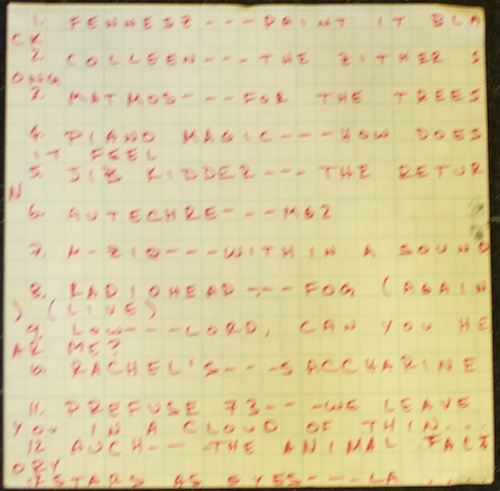 1. FENNESZ---PAINT IT BLA
CK
2. COLLEEN---THE ZITHER S
ONG
3. MATMOS---FOR THE TREES
4. PIANO MAGIC---HOW DOES
IT FEEL
5. JIB KIDDER---THE RETUR
N
6. AUTECHRE---M62
7. M-ZIQ---WITHIN A SOUND
8. RADIOHEAD---FOG (AGAIN
) (LIVE)
9. LOW---LORD, CAN YOU HE
AR ME?
10. RACHEL'S---SACCHARINE
11. PREFUSE 73---WE LEAVE
YOU IN A CLOUD OF THIN...
12 AUCH---THE ANIMAL FACT
ORY
STARS AS EYES---LA ....